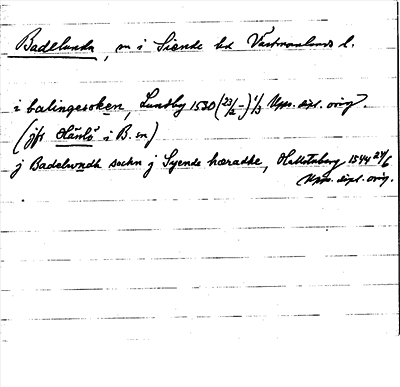 Badelunda, sn i Siende hd Västmanlands l.
i balingesoken, Lundby 1530 (23/12 - ) 1/3 Upps. dipl. orig.
(jfr Hånlö i B. sn)
j Badelwndh sochn j Syende hæradhe, Hallstaberg 1544 24/6
Upps. dipl. orig.